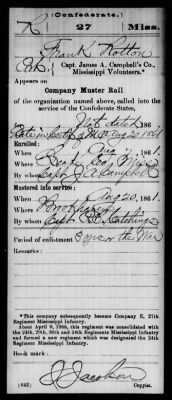 (Confederate.)
R 27 Miss.
Frank Rotton
Pvt., Capt. James A. Campbell's Co.,
Mississippi Volunteers.*
Appears on
Company Muster Roll
of the organization named above, called into the
service of the Confederate States,
Not dated
Date Aug 20, 1861
Enrolled:
When Aug, 1861.
Where Miss
By whom Capt J. A. Campbell
Mustered into service:
When Aug 20, 1861.
Where
By whom Capt
Period of enlistment 3 yrs or the War
Remarks:
*This company subsequently became Company E, 27th
Regiment Mississippi Infantry.
About April 9, 1865, this regiment was consolidated with
the 24th, 29th, 30th and 34th Regiments Mississippi Infantry
and formed a new regiment which was designated the 24th
Regiment Mississippi Infantry.
Book mark:
J. Jacobson
(642) Copyist.